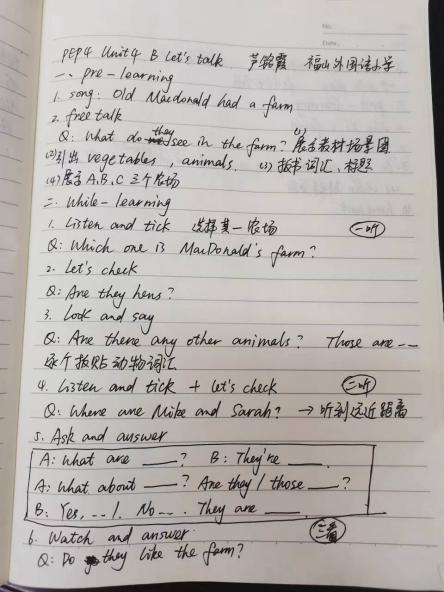 No.
Date.
PEP4 Unit4 B Let's talk 芦铭霞 福山外国语小学
一、pre-learning
1. song: Old Macdonald had a farm
2. free talk
Q: What do they see in the farm? (1)展示教材场景图
(2)引出 vegetables, animals. (3) 板书词汇, 标题
(4)展示A、B、C 三个农场
二、While-learning
1. Listen and tick 选择其一农场 一听
Q: Which one is MacDonald's farm?
2. Let's check
Q: Are they hens?
3. Look and say
Q: Are there any other animals? Those are ...
逐个板贴动物词汇
4. Listen and tick + Let's check 二听
Q: Where are Mike and Sarah? → 听到远近距离
5. Ask and answer
A: What are ____? B: They're ____.
A: What about ____? Are they / those ____?
B: Yes, ... /. No .... They are ____.
6. Watch and answer. 三看
Q: Do they like the farm?